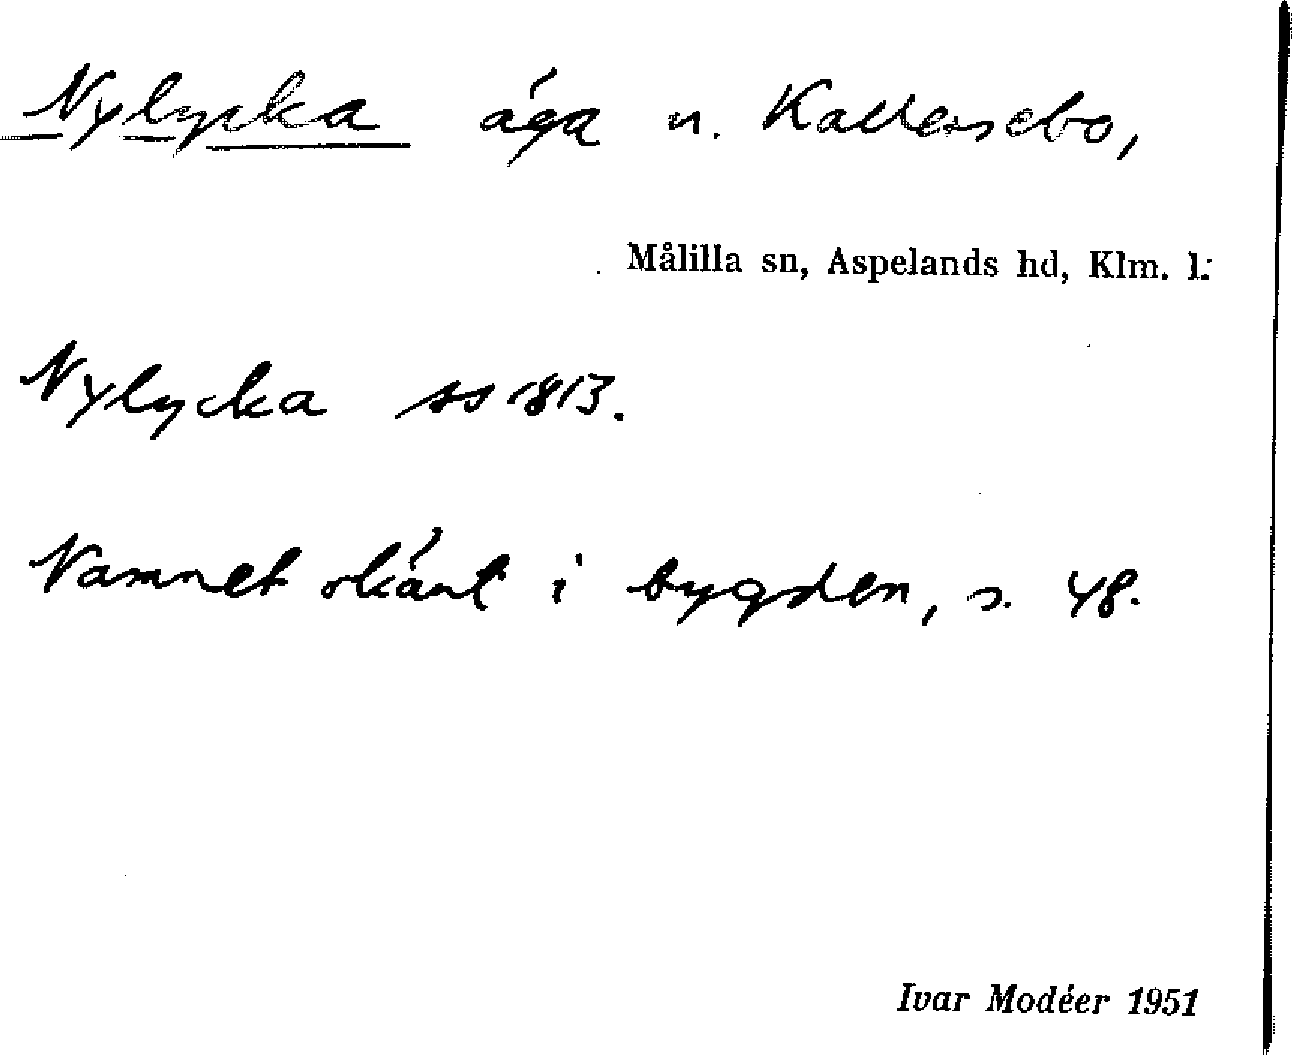 Nylycka äga u. Kallersebo,
Målilla sn, Aspelands hd, Klm. l.
Nylycka ss 1813.
Namnet okänt i bygden, s. 48.
Ivar Modéer 1951